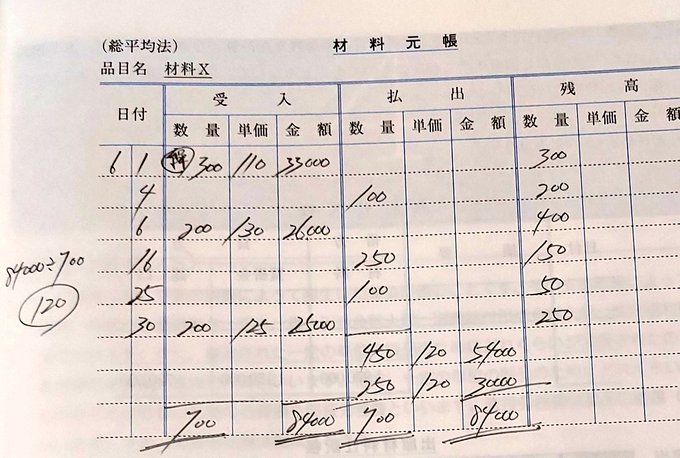 (総平均法) 材料元帳
品目名 材料X
日付 受入 払出 残高
数量 単価 金額 数量 単価 金額 数量 単価 金額
6 1 300 110 33000 300
4 100 200
6 200 130 26000 400
16 250 150
84000÷700
25 100 50
120
30 200 125 25000 250
450 120 54000
250 120 30000
700 84000 700 84000